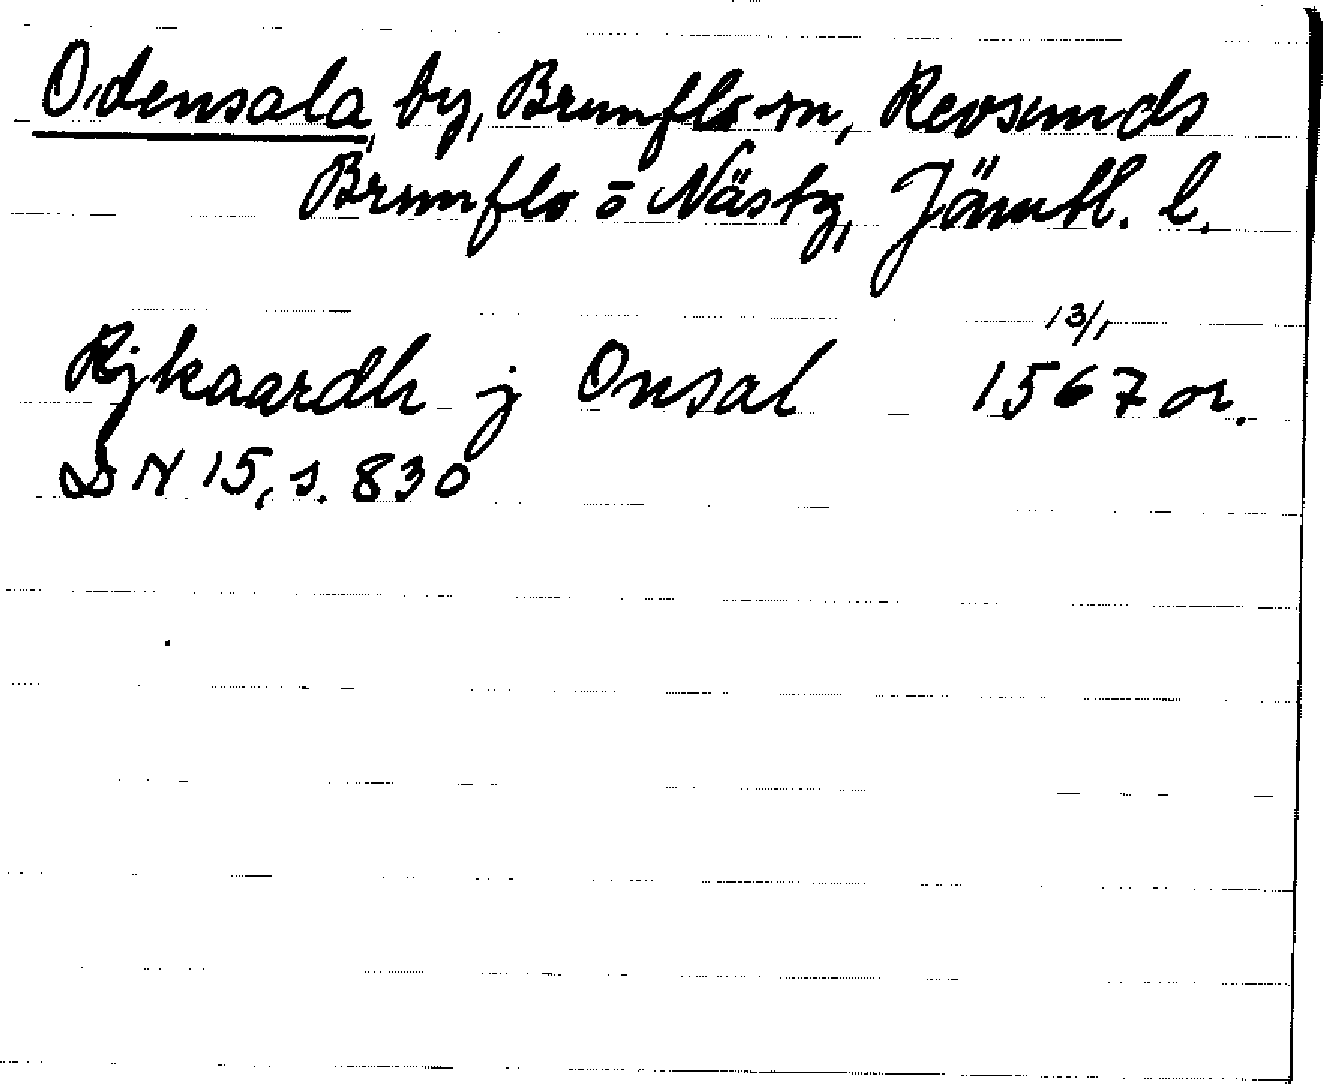 Odensala, by, Brunflo sn, Revsunds
Brunflo o Näsby, Jämtl. l.
13/1
Rijkaardh j Onsal 1567 or.
DN 15, s. 830